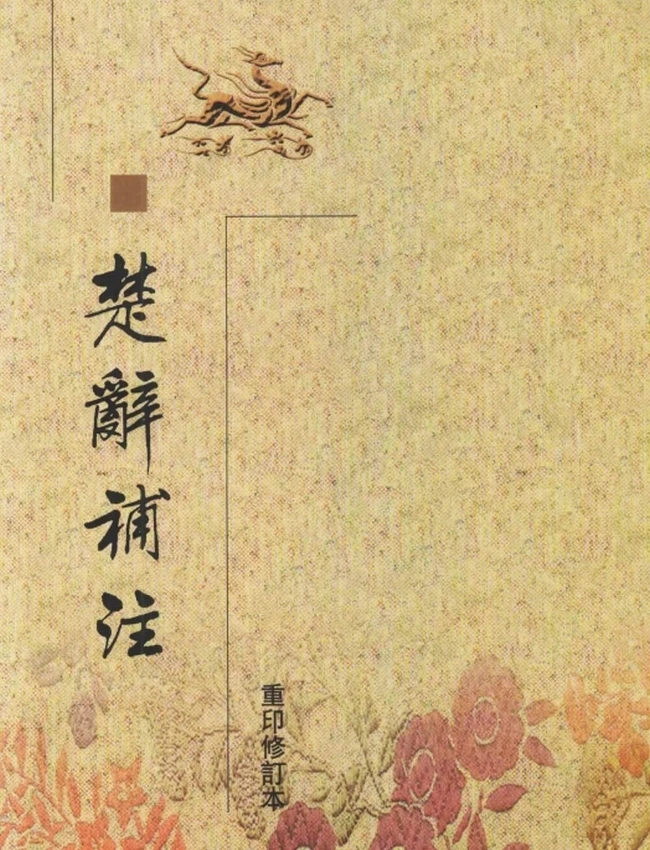 楚辭補注
重印修訂本